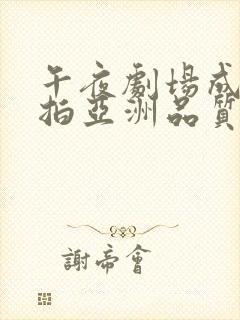 午夜劇場成
拍亞洲品質
謝帝會